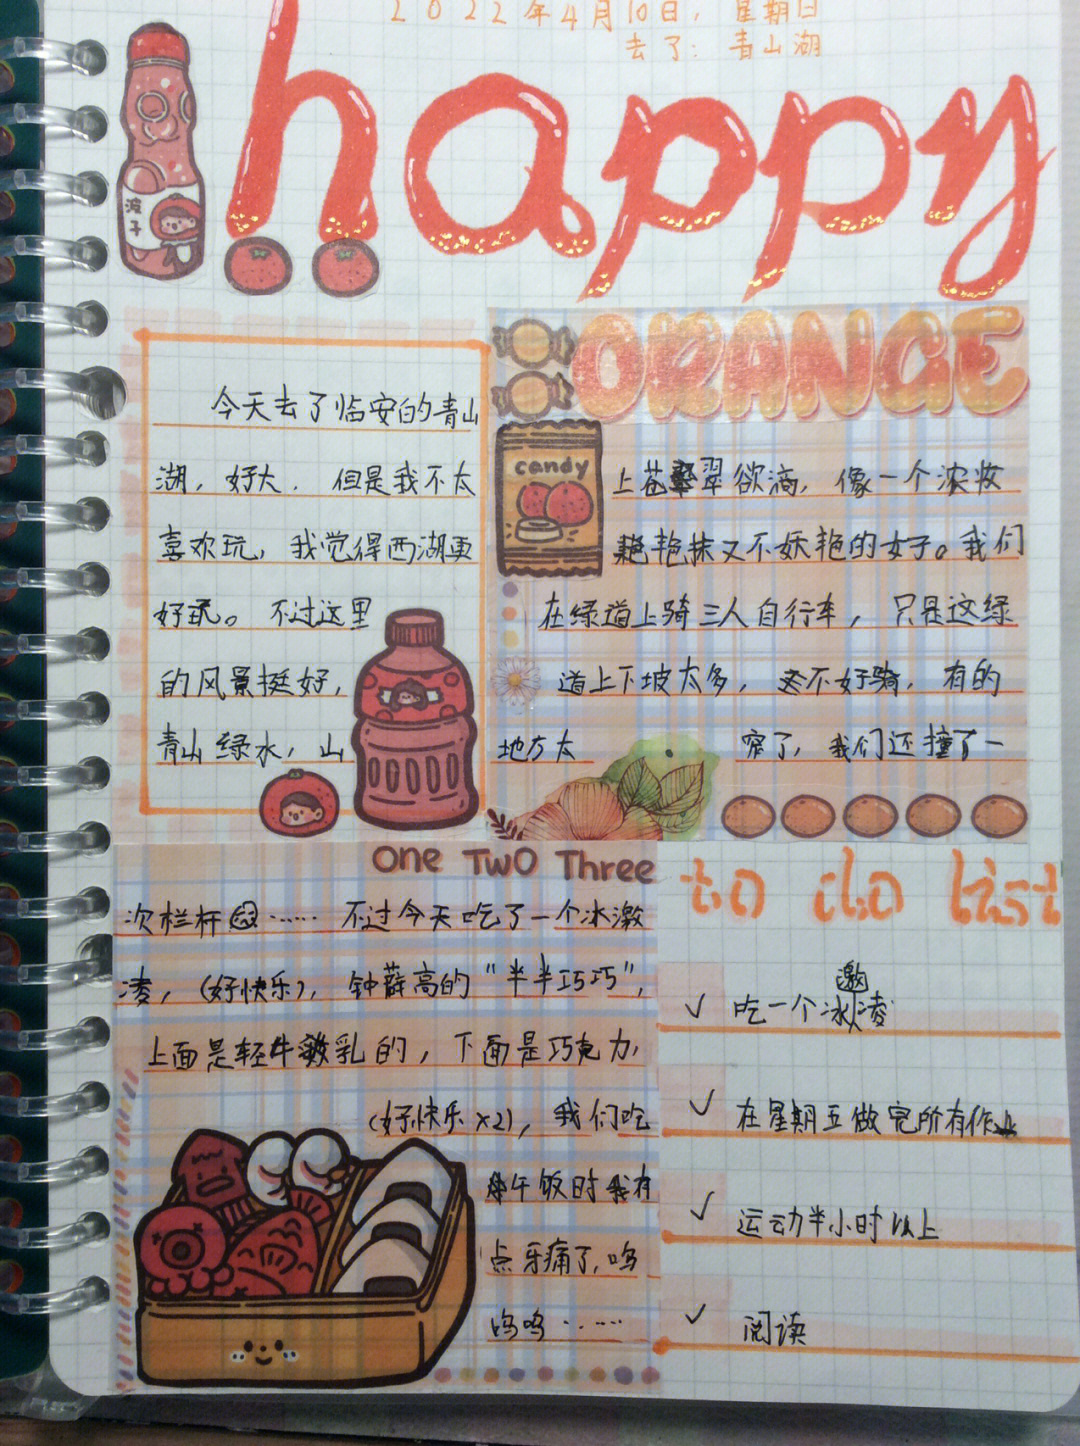 2022年4月10日，星期日
去了：青山湖
happy
波子
今天去了临安的青山
湖，好大，但是我不太
喜欢玩，我觉得西湖更
好玩。不过这里
的风景挺好，
青山绿水，山
ORANGE
candy
上苍翠欲滴，像一个浓妆
艳抹又不妖艳的女子。我们
在绿道上骑三人自行车，只是这绿
道上下坡太多，不好骑，有的
地方太窄了，我们还撞了一
one Two Three
次栏杆……不过今天吃了一个冰激
凌，(好快乐)，钟薛高的"半半巧巧"，
上面是轻牛乳的，下面是巧克力，
(好快乐×2)，我们吃
午饭时我有
点牙痛了，呜
呜呜……
to do list
✓ 吃一个冰激凌
✓ 在星期五做完所有作业
✓ 运动半小时以上
✓ 阅读